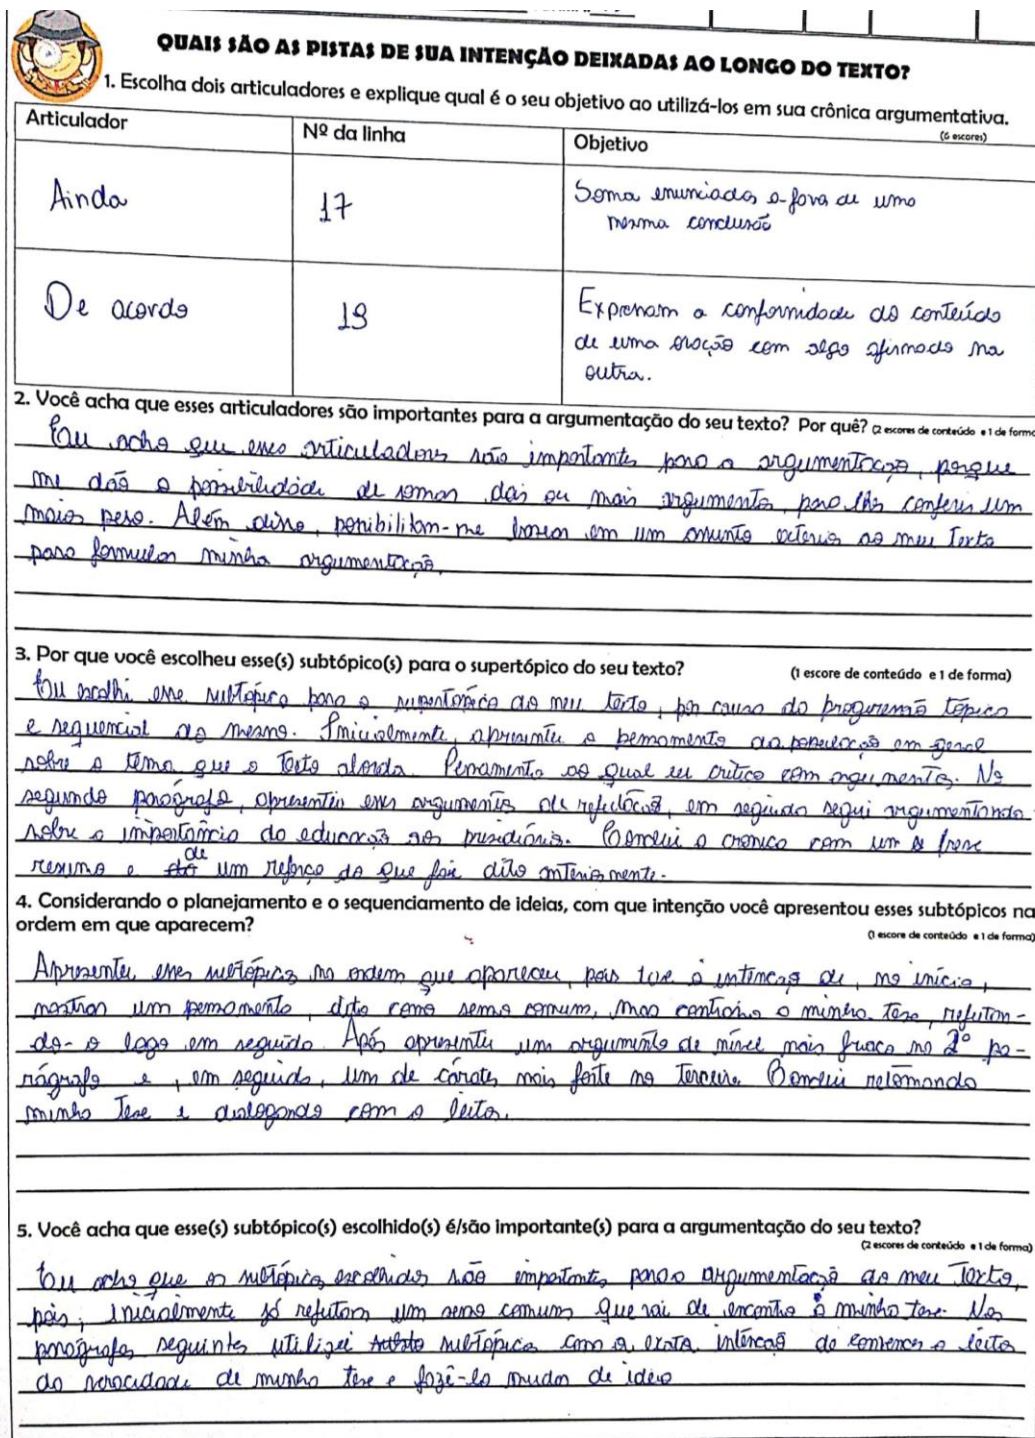 QUAIS SÃO AS PISTAS DE SUA INTENÇÃO DEIXADAS AO LONGO DO TEXTO?
1. Escolha dois articuladores e explique qual é o seu objetivo ao utilizá-los em sua crônica argumentativa.
(6 escores)
Articulador Nº da linha Objetivo
Ainda 17 Soma enunciados a favor de uma
mesma conclusão
De acordo 19 Expressam a conformidade do conteúdo
de uma oração com algo afirmado na
outra.
2. Você acha que esses articuladores são importantes para a argumentação do seu texto? Por quê? (2 escores de conteúdo e 1 de forma
Eu acho que esses articuladores são importantes para a argumentação, porque
me dão a possibilidade de somar dois ou mais argumentos, para lhes conferir um
maior peso. Além disso, possibilitam-me basear em um assunto exterior ao meu texto
para formular minha argumentação.
3. Por que você escolheu esse(s) subtópico(s) para o supertópico do seu texto? (1 escore de conteúdo e 1 de forma)
Eu escolhi esse subtópico para o supertópico do meu texto, por causa da progressão tópica
e sequencial do mesmo. Inicialmente, apresentei o pensamento da população em geral
sobre o tema que o texto aborda. Pensamento ao qual eu critico com argumentos. No
segundo parágrafo, apresentei esses argumentos de refutação, em seguida segui argumentando
sobre a importância da educação aos presidiários. Conclui a crônica com um breve
resumo e de um reforço do que foi dito anteriormente.
4. Considerando o planejamento e o sequenciamento de ideias, com que intenção você apresentou esses subtópicos na
ordem em que aparecem?
(1 escore de conteúdo e 1 de forma)
Apresentei esses subtópicos na ordem que apareceu, pois tive a intenção de, no início,
mostrar um pensamento, dito como senso comum, mas contrário a minha tese, refutan-
do-o logo em seguida. Após apresentei um argumento de nível mais fraco no 2º pa-
rágrafo e, em seguida, um de caráter mais forte no terceiro. Conclui retomando
minha tese e dialogando com o leitor.
5. Você acha que esse(s) subtópico(s) escolhido(s) é/são importante(s) para a argumentação do seu texto?
(2 escores de conteúdo e 1 de forma)
Eu acho que os subtópicos escolhidos são importantes para a argumentação do meu texto,
pois, inicialmente já refutam um senso comum que vai de encontro à minha tese. Nos
parágrafos seguintes utilizei subtópicos com a exata intenção de convencer o leitor
da veracidade de minha tese e fazê-lo mudar de ideia